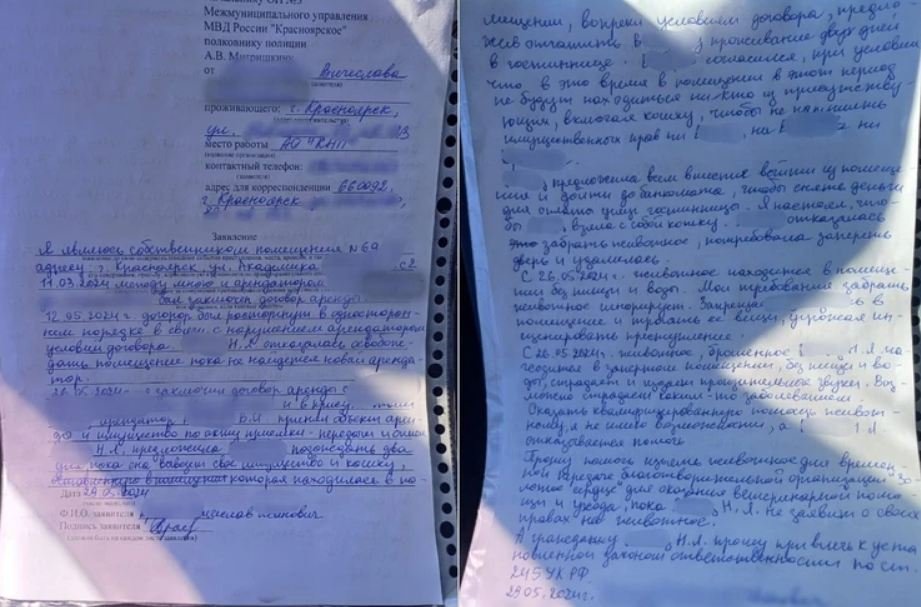 Межмуниципального управления
МВД России "Красноярское"
полковнику полиции
А.В. Митрошкину
от Вячеслава
проживающего: г. Красноярск,
ул. 23
место работы АО "КНП
контактный телефон:
адрес для корреспонденции 660092,
г. Красноярск
Заявление
Я являюсь собственником помещения №69
адресу: г. Красноярск ул. Академика с2
11.03.2024 между мною и арендатором
был заключен договор аренды.
12.05.2024 г. договор был расторгнут в односторон-
нем порядке в связи с нарушением арендатором
условий договора. Н.Л. отказалась освобож-
дать помещение пока не найдется новый аренда-
тор.
26.05.2024 заключил договор аренды с
арендатор В.И. принял объект арен-
ды и имущество по акту приемки-передачи
Н.Л. предложила подождать два
дня пока она вывезет свое имущество и кошку,
которая находилась в по-
Дата 29.05.2024
Ф.И.О. заявителя
Подпись заявителя
мещении, вопреки условиям договора, предло-
жив оплатить В проживание двух дней
в гостинице. согласился, при условии
что в это время в помещении в этот период
не будут находиться никто из присутству-
ющих, включая кошку, чтобы не нарушать
имущественных прав ни на ни
предложила всем вместе выйти из помеще-
ния и дойти до банкомата, чтобы снять деньги
для оплаты гостиницы. Я настоял, что-
бы взяла с собой кошку. отказалась
забрать животное, потребовала запереть
дверь и удалилась.
С 26.05.2024г. животное находится в помеще-
нии без пищи и воды. Мои требования забрать
животное игнорирует. Запрещает в
помещение и трогать ее вещи, угрожая ин-
сценировать преступление.
С 26.05.2024г. животное, брошенное Н.Л. на-
ходится в запертом помещении, без пищи и во-
ды, страдает и издает пронзительные звуки. Воз-
можно страдает каким-то заболеванием.
Оказать квалифицированную помощь живот-
ному, я не имею возможности, а Л.
отказывается помочь
Прошу помочь изъять животное для времен-
ной передаче благотворительной организации "Зо
лотое сердце" для оказания ветеринарной помо-
щи и ухода, пока Н.Л. не заявит о своих
правах на животное.
А гражданку Н.Л. прошу привлечь к уста
новленной законом ответственности по ст.
245 УК РФ.
29.05.2024г.